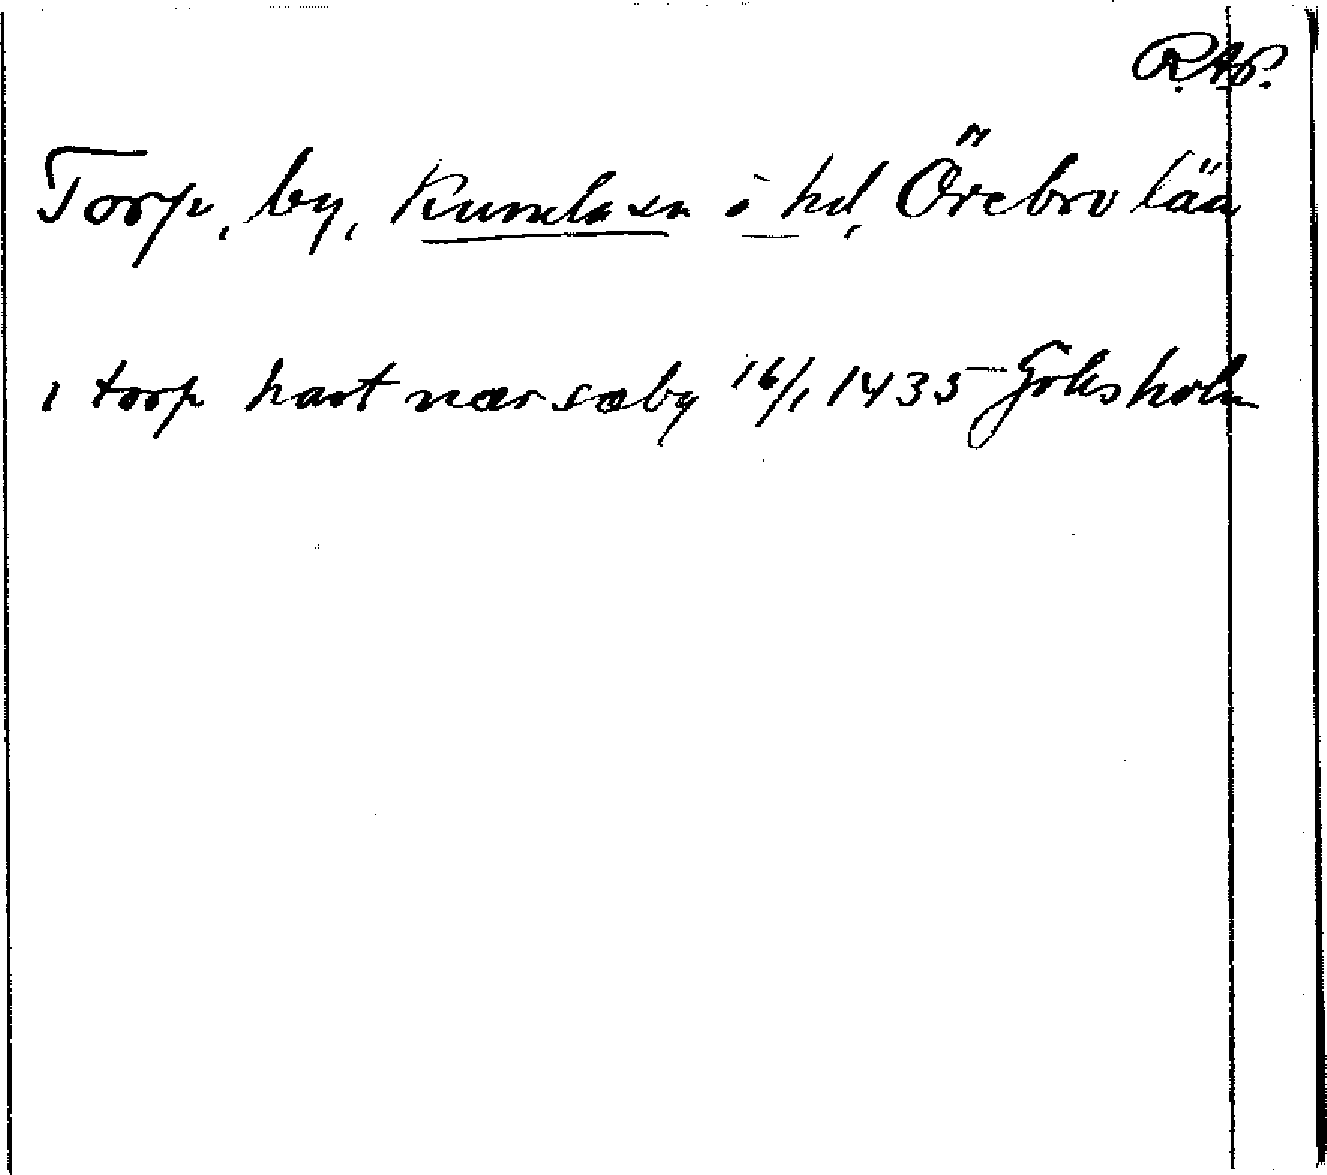 R.A.P.
Torp, by, Kumla sn o hd, Örebro län
i torp hart nær sæby 16/1 1435 Göksholm